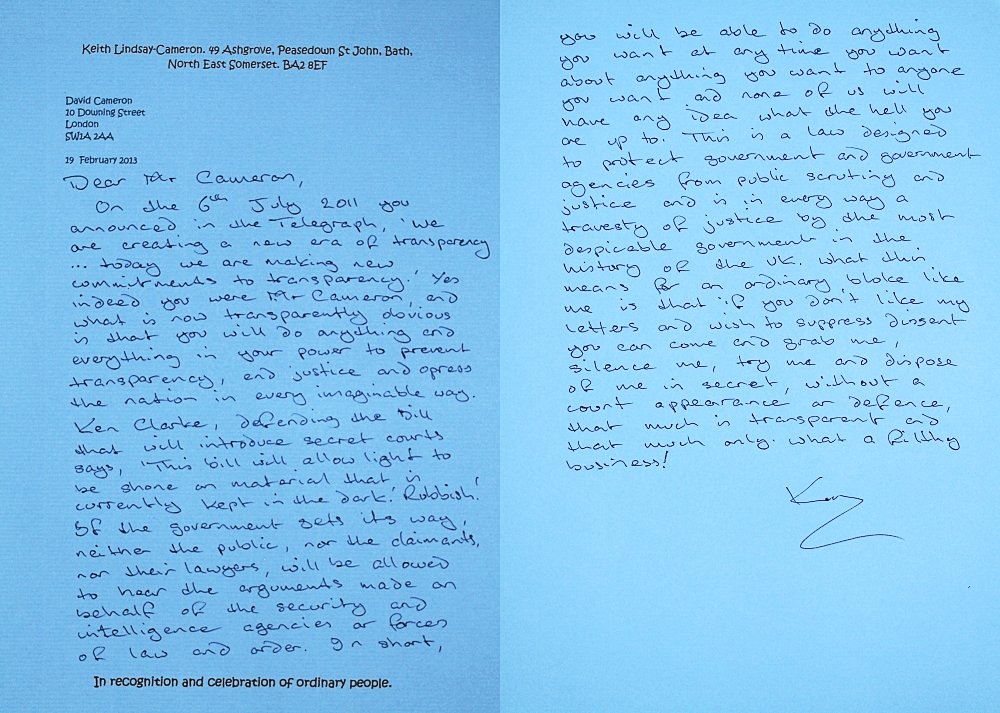 Keith Lindsay-Cameron. 49 Ashgrove, Peasedown St John, Bath,
North East Somerset. BA2 8EF
David Cameron
10 Downing Street
London
SW1A 2AA
19 February 2013
Dear Mr Cameron,
On the 6th July 2011 you
announced in the Telegraph, 'We
are creating a new era of transparency
... today we are making new
commitments to transparency.' Yes
indeed you were Mr Cameron, and
what is now transparently obvious
is that you will do anything and
everything in your power to prevent
transparency, and justice and opress
the nation in every imaginable way.
Ken Clarke, defending the bill
that will introduce secret courts
says, 'This bill will allow light to
be shone on material that is
currently kept in the dark.' Rubbish!
If the government gets its way,
neither the public, nor the claimants,
nor their lawyers, will be allowed
to hear the arguments made on
behalf of the security and
intelligence agencies or forces
of law and order. In short,
In recognition and celebration of ordinary people.
you will be able to do anything
you want at any time you want
about anything you want to anyone
you want and none of us will
have any idea what the hell you
are up to. This is a law designed
to protect government and government
agencies from public scrutiny and
justice and is in every way a
travesty of justice by the most
despicable government in the
history of the UK. What this
means for an ordinary bloke like
me is that if you don't like my
letters and wish to suppress dissent
you can come and grab me,
silence me, try me and dispose
of me in secret, without a
court appearance or defence,
that much is transparent and
that much only. What a filthy
business!